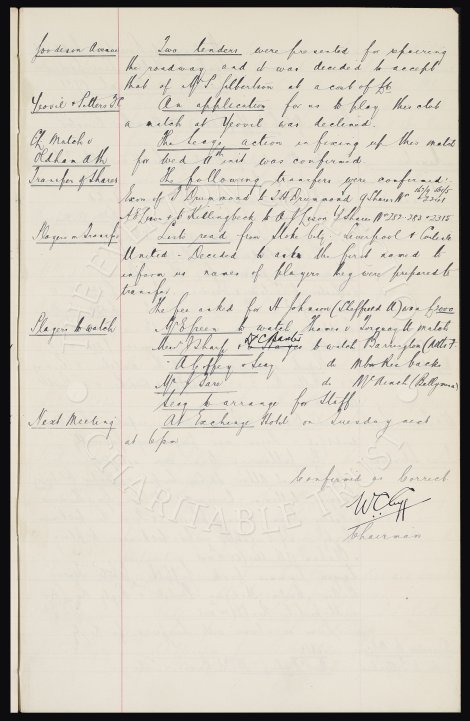 Goodison Avenue Two tenders were presented for repairing
the roadway and it was decided to accept
that of Mr S. Gilbertson at a cost of £6
Yeovil & Petters F.C An application for us to play this club
a match at Yeovil was declined
Ch. Match v The action in fixing up this match
Oldham Ath for Wed 11th inst was confirmed
Transfer of Shares The following transfers were confirmed.
Exors of J Drummond to Drummond 9 Shares No
to Shares No 282-283 & 2315
Players on Transfer Lists read from Stoke City, Liverpool &
United - Decided to ask the first named to
inform us names of players they were prepared to
transfer
The fee asked for H Johnson (Sheffield U) was
Players to watch Mr E Green to watch Thames v Torquay U match
Messrs J Sharp & Dr C Baxter to watch Barrington
A Coffey & Secy do
Mr do (Ballymena)
Secy to arrange for Staff
Next Meeting At Exchange Hotel on Tuesday next
at 6pm
Confirmed as Correct
W.C. Cuff
Chairman
CHARITABLE TRUST